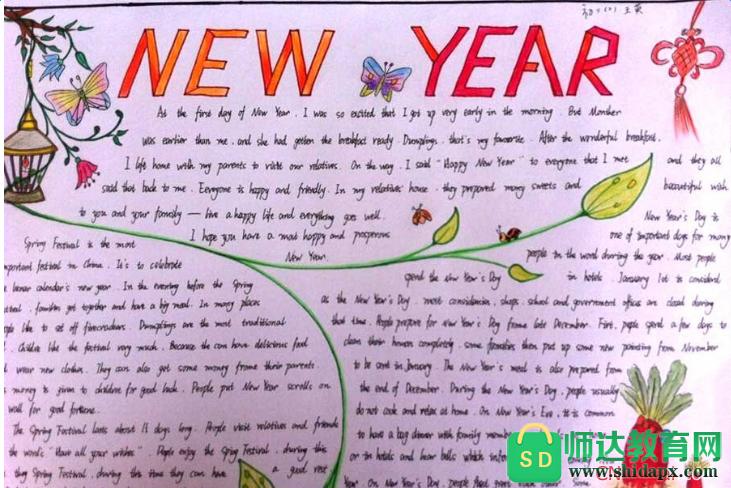 NEW YEAR
At the first day of New Year. I was so excited that I got up very early in the morning. But Monther
was earlier than me. and she had gotten the breakfast ready. Dumplings. that's my favourite. After the wonderful breakfast.
I life home with my parents to visite our relatives. On the way. I said "Happy New Year" to everyone that I met
said that back to me. Everyone is happy and friendly. In my relatives' house. they prepared money sweets and
to you and your family — live a happy life and everything goes well.
I hope you have a most happy and prosperous
New Year.
and they all
beautiful wish
Spring Festival is the most
important festival in China. It's to celebrate
lunar calendar's new year. In the evening before the Spring
families get together and have a big meal. In many places
people like to set off firecrackers. Dumplings are the most traditional
Children like the festival very much. Because the can have delicious food
wear new clothes. They can also get some money frome their parents
money is given to children for good luck. People put New Year scrolls on
wall for good fortune.
The Spring Festival lasts about 15 days long. People visit relatives and friends
the words "Have all your wishes". People enjoy the Sping Festival. during this
Sping Festival. during this time they can have a good rest
New Year's Day is
one of important days for many
people in the word during the year. Most people
spend the new Year's Day in hotels. January 1st is considerd
as the New Year's Day. most shops. school and government offices are closed during
that time. People prepare for New Year's Day frome late December. First. people spend a few days to
clean their houses completely. some families then put up some new painting from November
to be sent in January. The New Year's meal is also prepared from
the end of December. During the New Year's Day. people usually
do not cook and relax at home. On New Year's Eve. it is common
to have a big dinner with family
or in hotels and hear bells which
Year. On New Year's Day. people
SD 师达教育网
www.shidapx.com